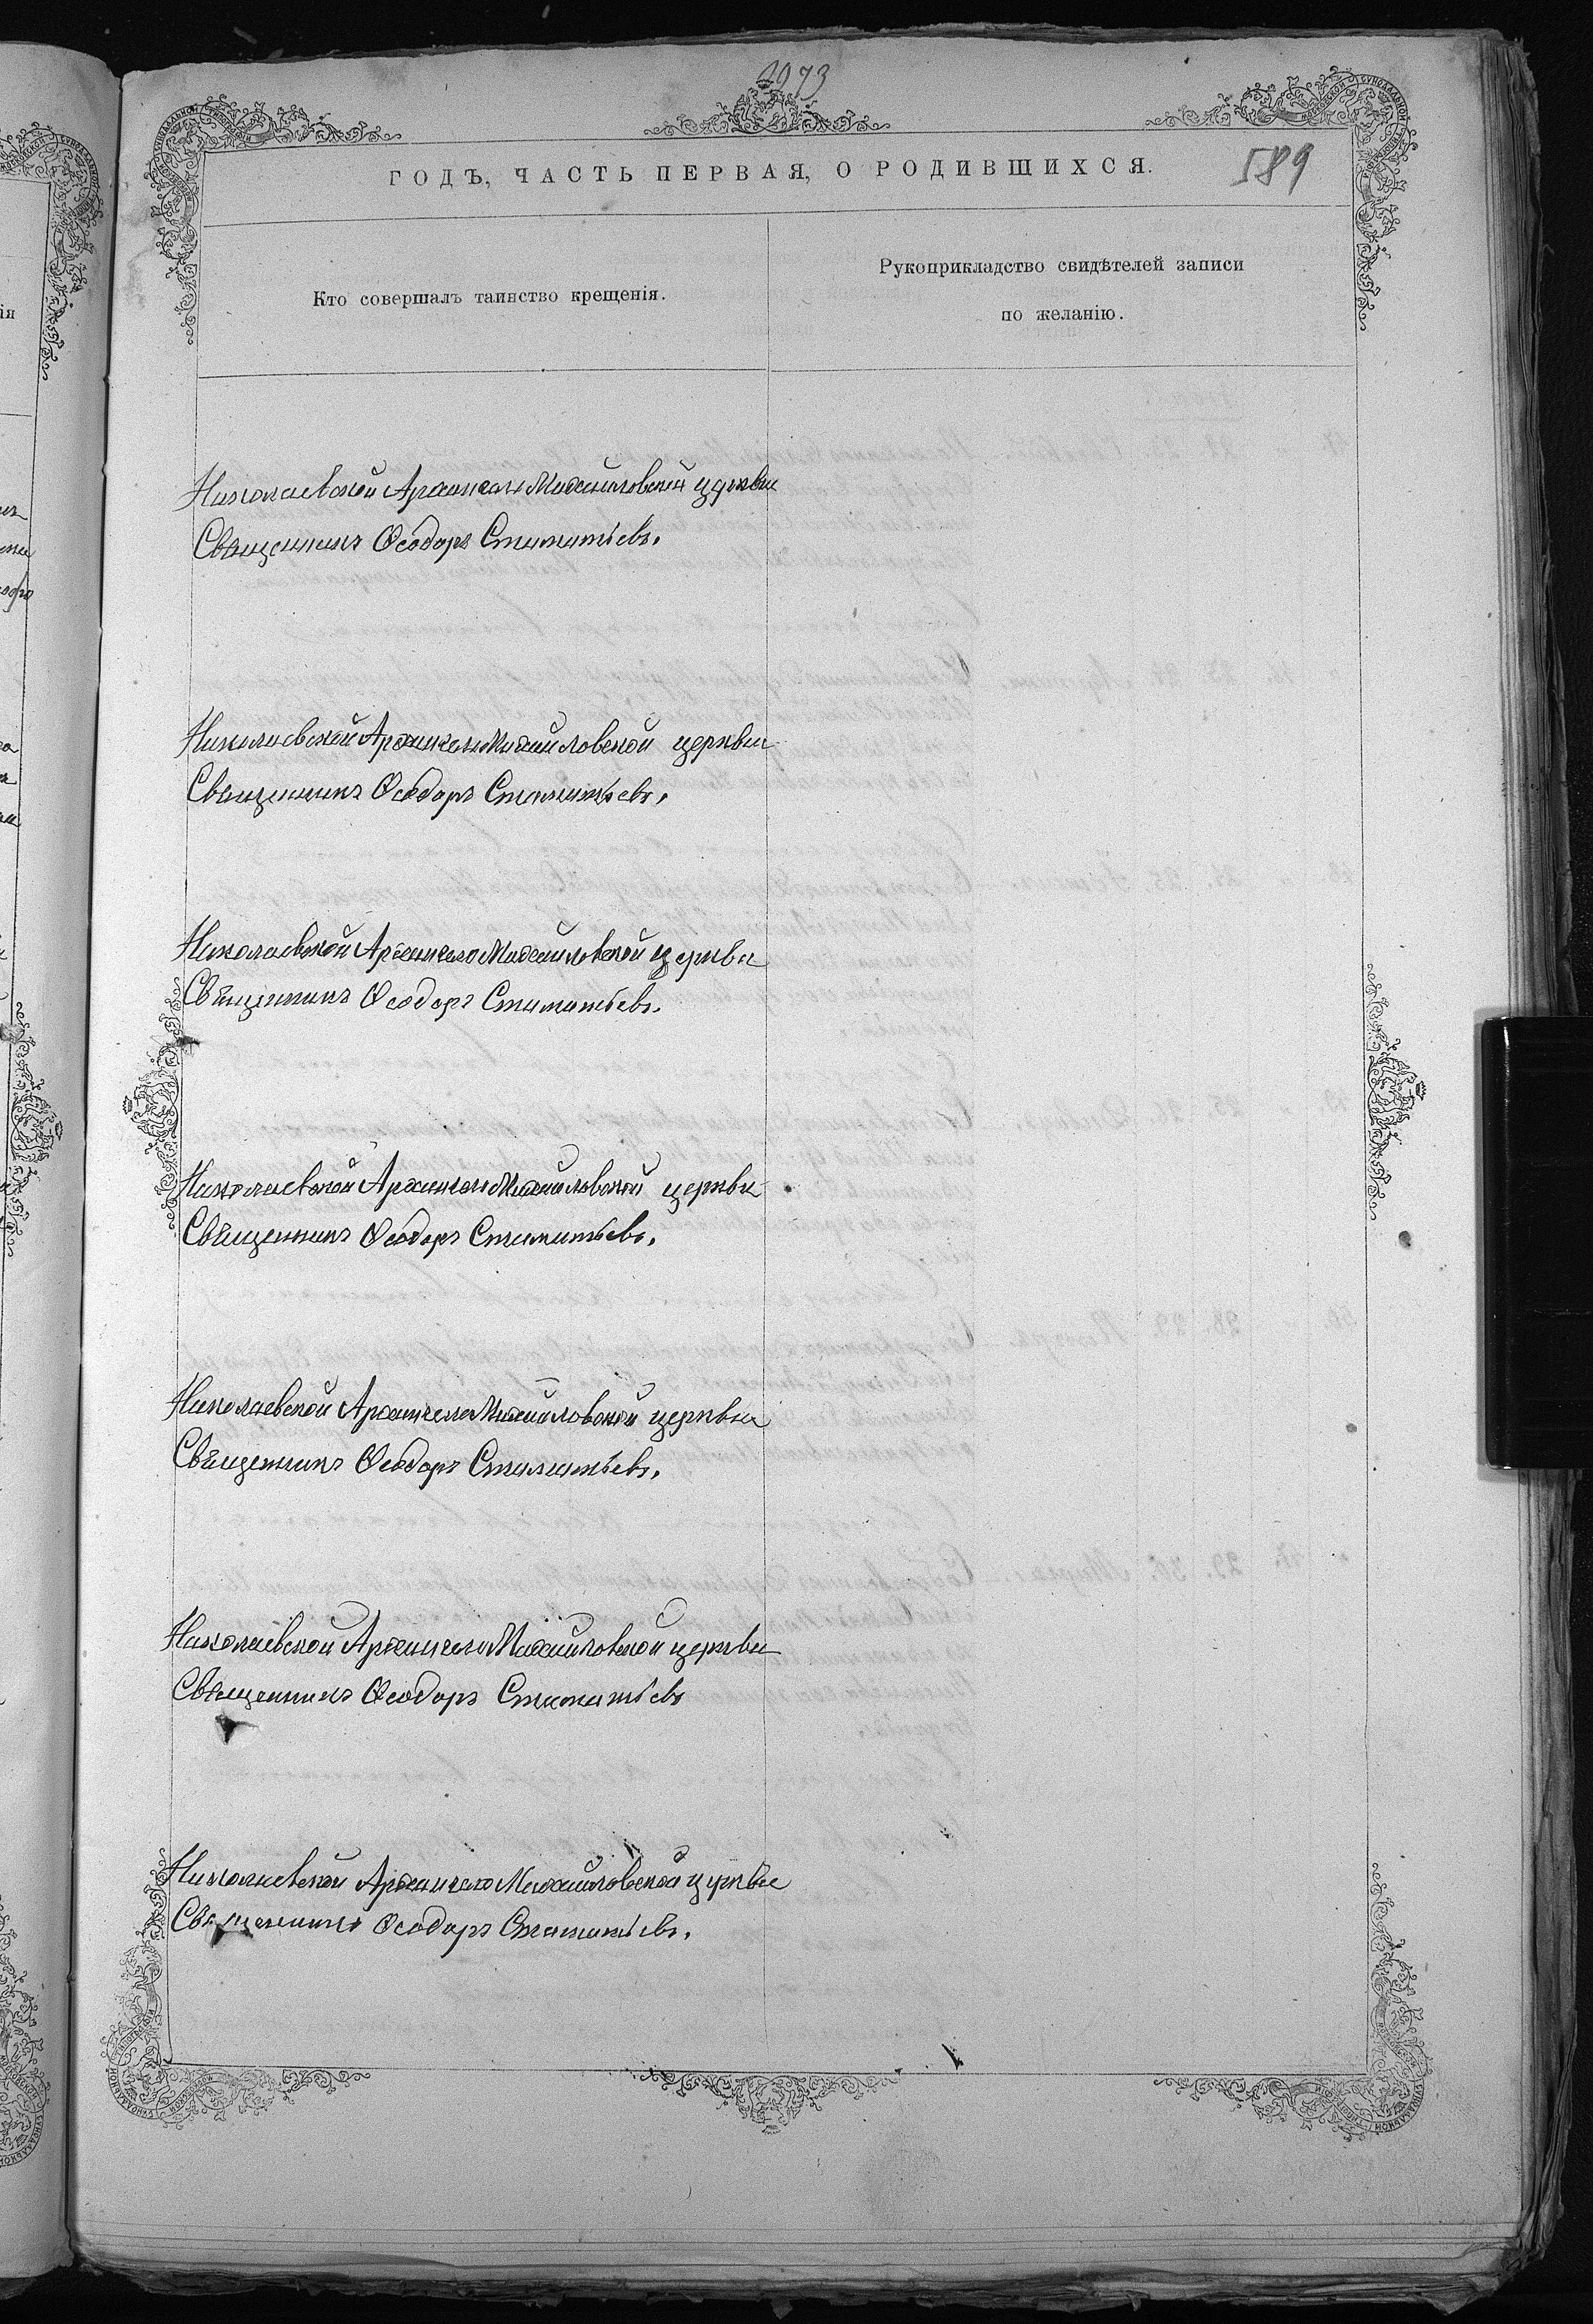 1073
ГОДЪ, ЧАСТЬ ПЕРВАЯ, О РОДИВШИХСЯ.
589
Кто совершалъ таинство крещенія.
Рукоприкладство свидѣтелей записи
по желанію.
Николаевской Архангело Михайловской церкви
Священникъ Ѳеодоръ Стаматьевъ.
Николаевской Архангело Михайловской церкви
Священникъ Ѳеодоръ Стаматьевъ.
Николаевской Архангело Михайловской церкви
Священникъ Ѳеодоръ Стаматьевъ.
Николаевской Архангело Михайловской церкви
Священникъ Ѳеодоръ Стаматьевъ.
Николаевской Архангело Михайловской церкви
Священникъ Ѳеодоръ Стаматьевъ.
Николаевской Архангело Михайловской церкви
Священникъ Ѳеодоръ Стаматьевъ
Николаевской Архангело Михайловской церкви
Священникъ Ѳеодоръ Стаматьевъ.